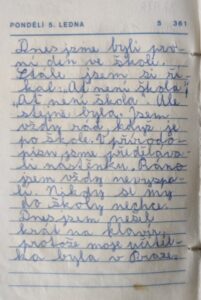 PONDĚLÍ 5. LEDNA 5 361
Dnes jsme byli prv-
ní den ve škole.
Stále jsem si ří-
kal: „Ať není škola!
„Ať není škola". Ale
stejně byla. Jsem
vždy rád, když je
po škole. V přírodo-
pisu jsme předěláva-
li násťenku. Ráno
jsem vždy nevyspa-
lý. Nikdy se mi
do školy nechce.
Dnes jsem nešel
hrát na klavír,
protože moje učitel-
ka byla v Praze.